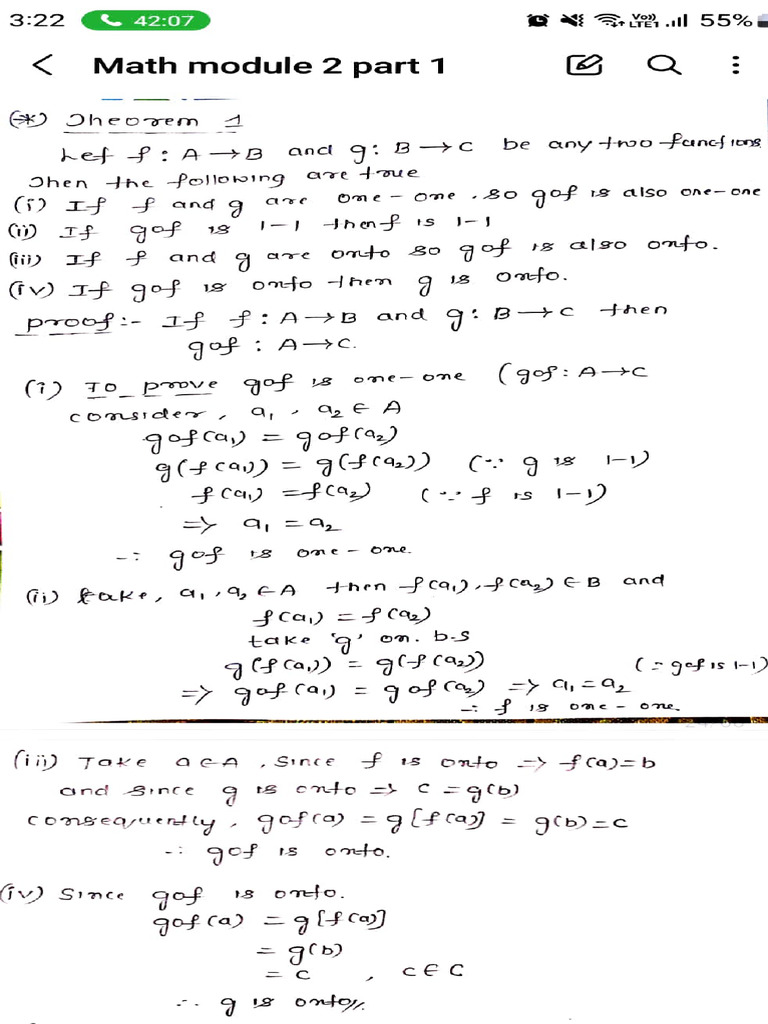 3:22 42:07 Vo)) LTE1 55%
Math module 2 part 1
(*) Theorem 1
Let f : A → B and g : B → C be any two functions
Then the following are true
(i) If f and g are one-one, so gof is also one-one
(ii) If gof is 1-1 then f is 1-1
(iii) If f and g are onto so gof is also onto.
(iv) If gof is onto then g is onto.
proof:- If f : A → B and g : B → C then
gof : A → C.
(i) To prove gof is one-one (gof : A → C
consider, a₁, a₂ ∈ A
gof(a₁) = gof(a₂)
g(f(a₁)) = g(f(a₂)) (∵ g is 1-1)
f(a₁) = f(a₂) (∵ f is 1-1)
=> a₁ = a₂
∴ gof is one-one.
(ii) take, a₁, a₂ ∈ A then f(a₁), f(a₂) ∈ B and
f(a₁) = f(a₂)
take 'g' on b.s
g(f(a₁)) = g(f(a₂)) (∵ gof is 1-1)
=> gof(a₁) = gof(a₂) => a₁ = a₂
∴ f is one-one.
(iii) Take a ∈ A, since f is onto => f(a) = b
and since g is onto => c = g(b)
consequently, gof(a) = g[f(a)] = g(b) = c
∴ gof is onto.
(iv) Since gof is onto.
gof(a) = g[f(a)]
= g(b)
= c , c ∈ C
∴ g is onto//.